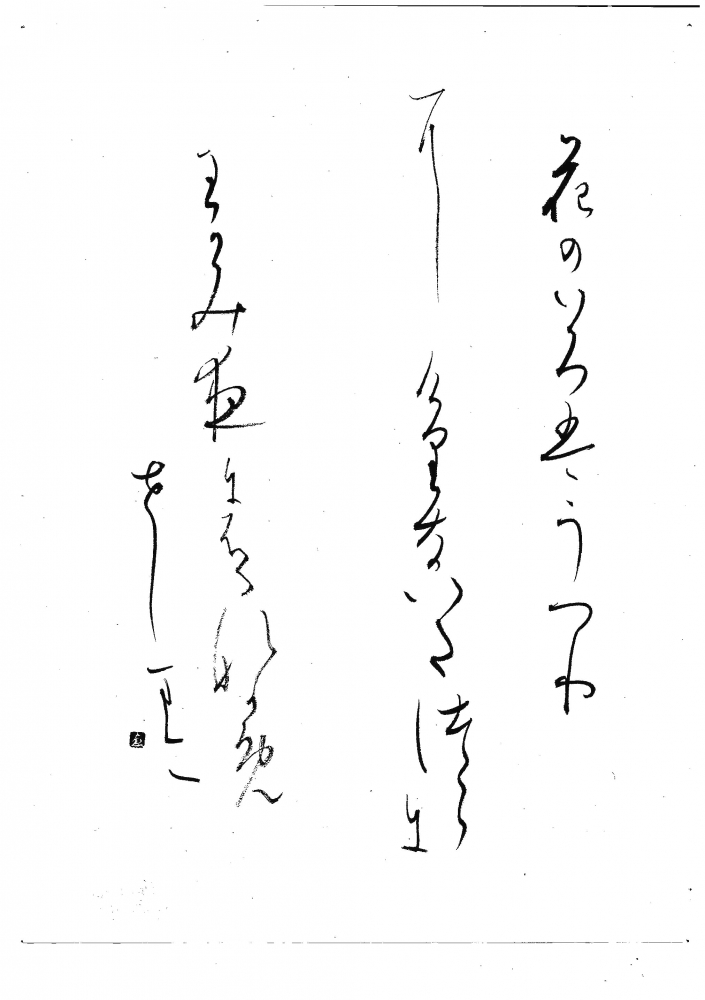 花のいろはうつり
にけりないたつらに
わかみ夜にふるなかめ
せしまに